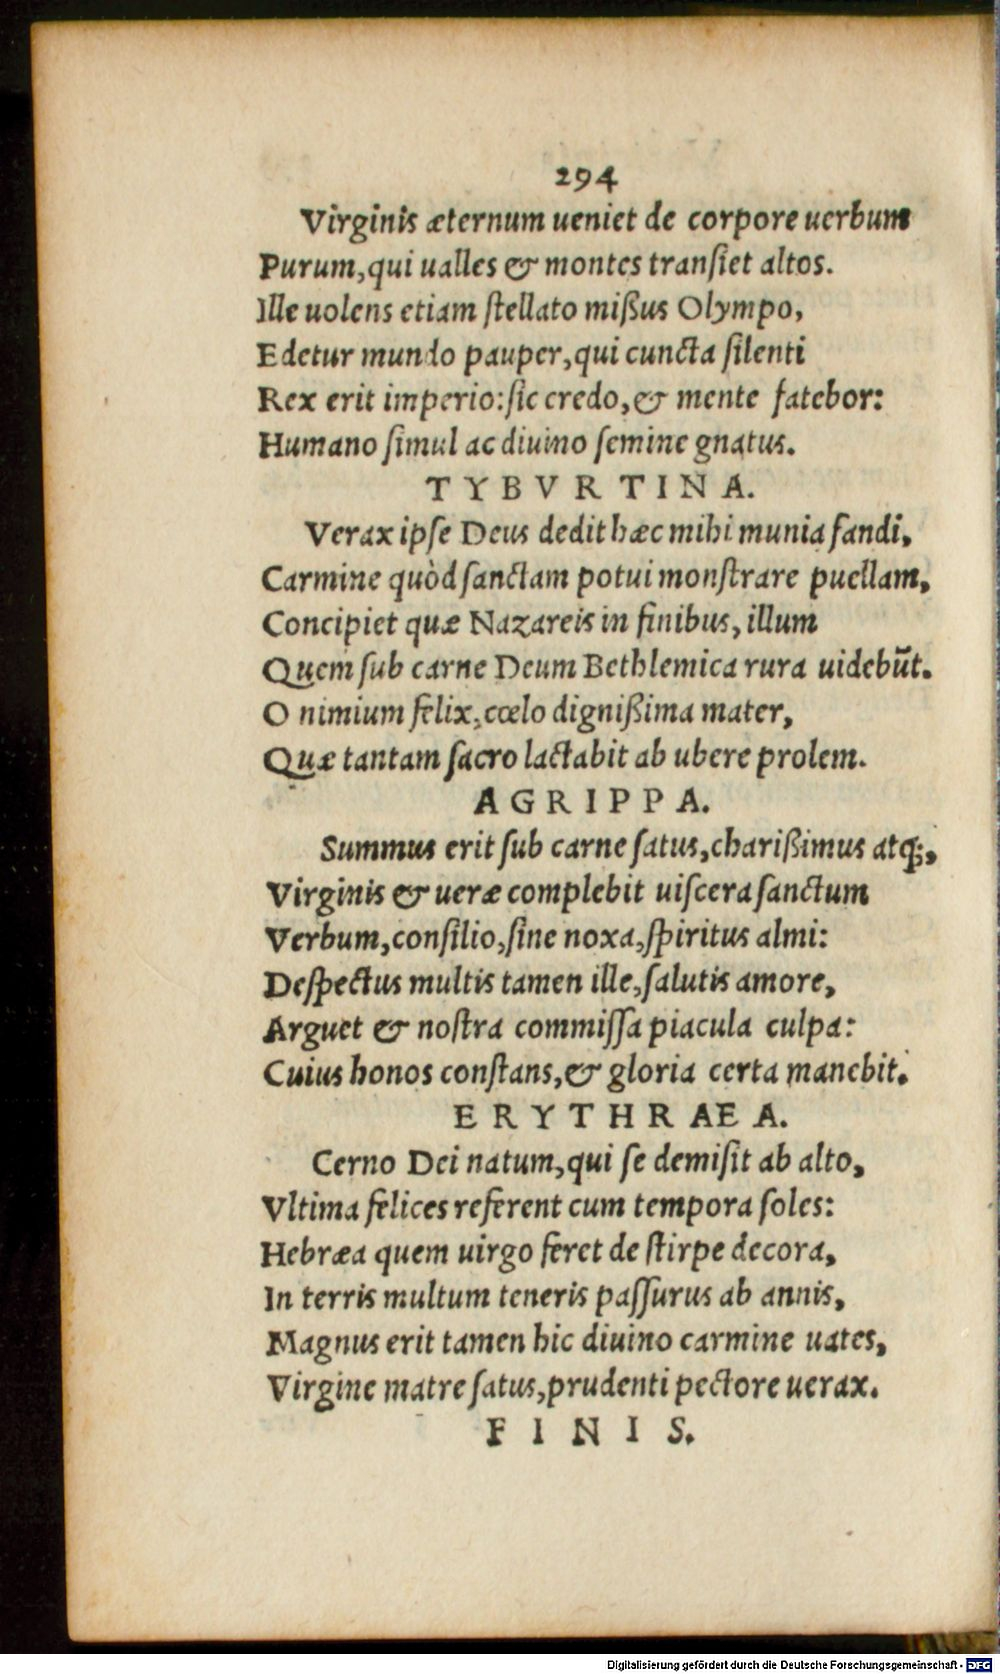 294
Virginis æternum ueniet de corpore uerbum
Purum, qui ualles & montes tranſiet altos.
Ille uolens etiam ſtellato mißus Olympo,
Edetur mundo pauper, qui cuncta ſilenti
Rex erit imperio: ſic credo, & mente fatebor:
Humano ſimul ac diuino ſemine gnatus.
TYBVRTINA.
Verax ipſe Deus dedit hæc mihi munia fandi,
Carmine quòd ſanctam potui monſtrare puellam,
Concipiet quæ Nazareis in finibus, illum
Quem ſub carne Deum Bethlemica rura uidebūt.
O nimium felix, cœlo dignißima mater,
Quæ tantam ſacro lactabit ab ubere prolem.
AGRIPPA.
Summus erit ſub carne ſatus, charißimus atq;,
Virginis & ueræ complebit uiſcera ſanctum
Verbum, conſilio, ſine noxa, ſpiritus almi:
Deſpectus multis tamen ille, ſalutis amore,
Arguet & noſtra commiſſa piacula culpa:
Cuius honos conſtans, & gloria certa manebit.
ERYTHRAEA.
Cerno Dei natum, qui ſe demiſit ab alto,
Vltima felices referent cum tempora ſoles:
Hebræa quem uirgo feret de ſtirpe decora,
In terris multum teneris paſſurus ab annis,
Magnus erit tamen hic diuino carmine uates,
Virgine matre ſatus, prudenti pectore uerax.
FINIS.
Digitalisierung gefördert durch die Deutsche Forschungsgemeinschaft - DFG